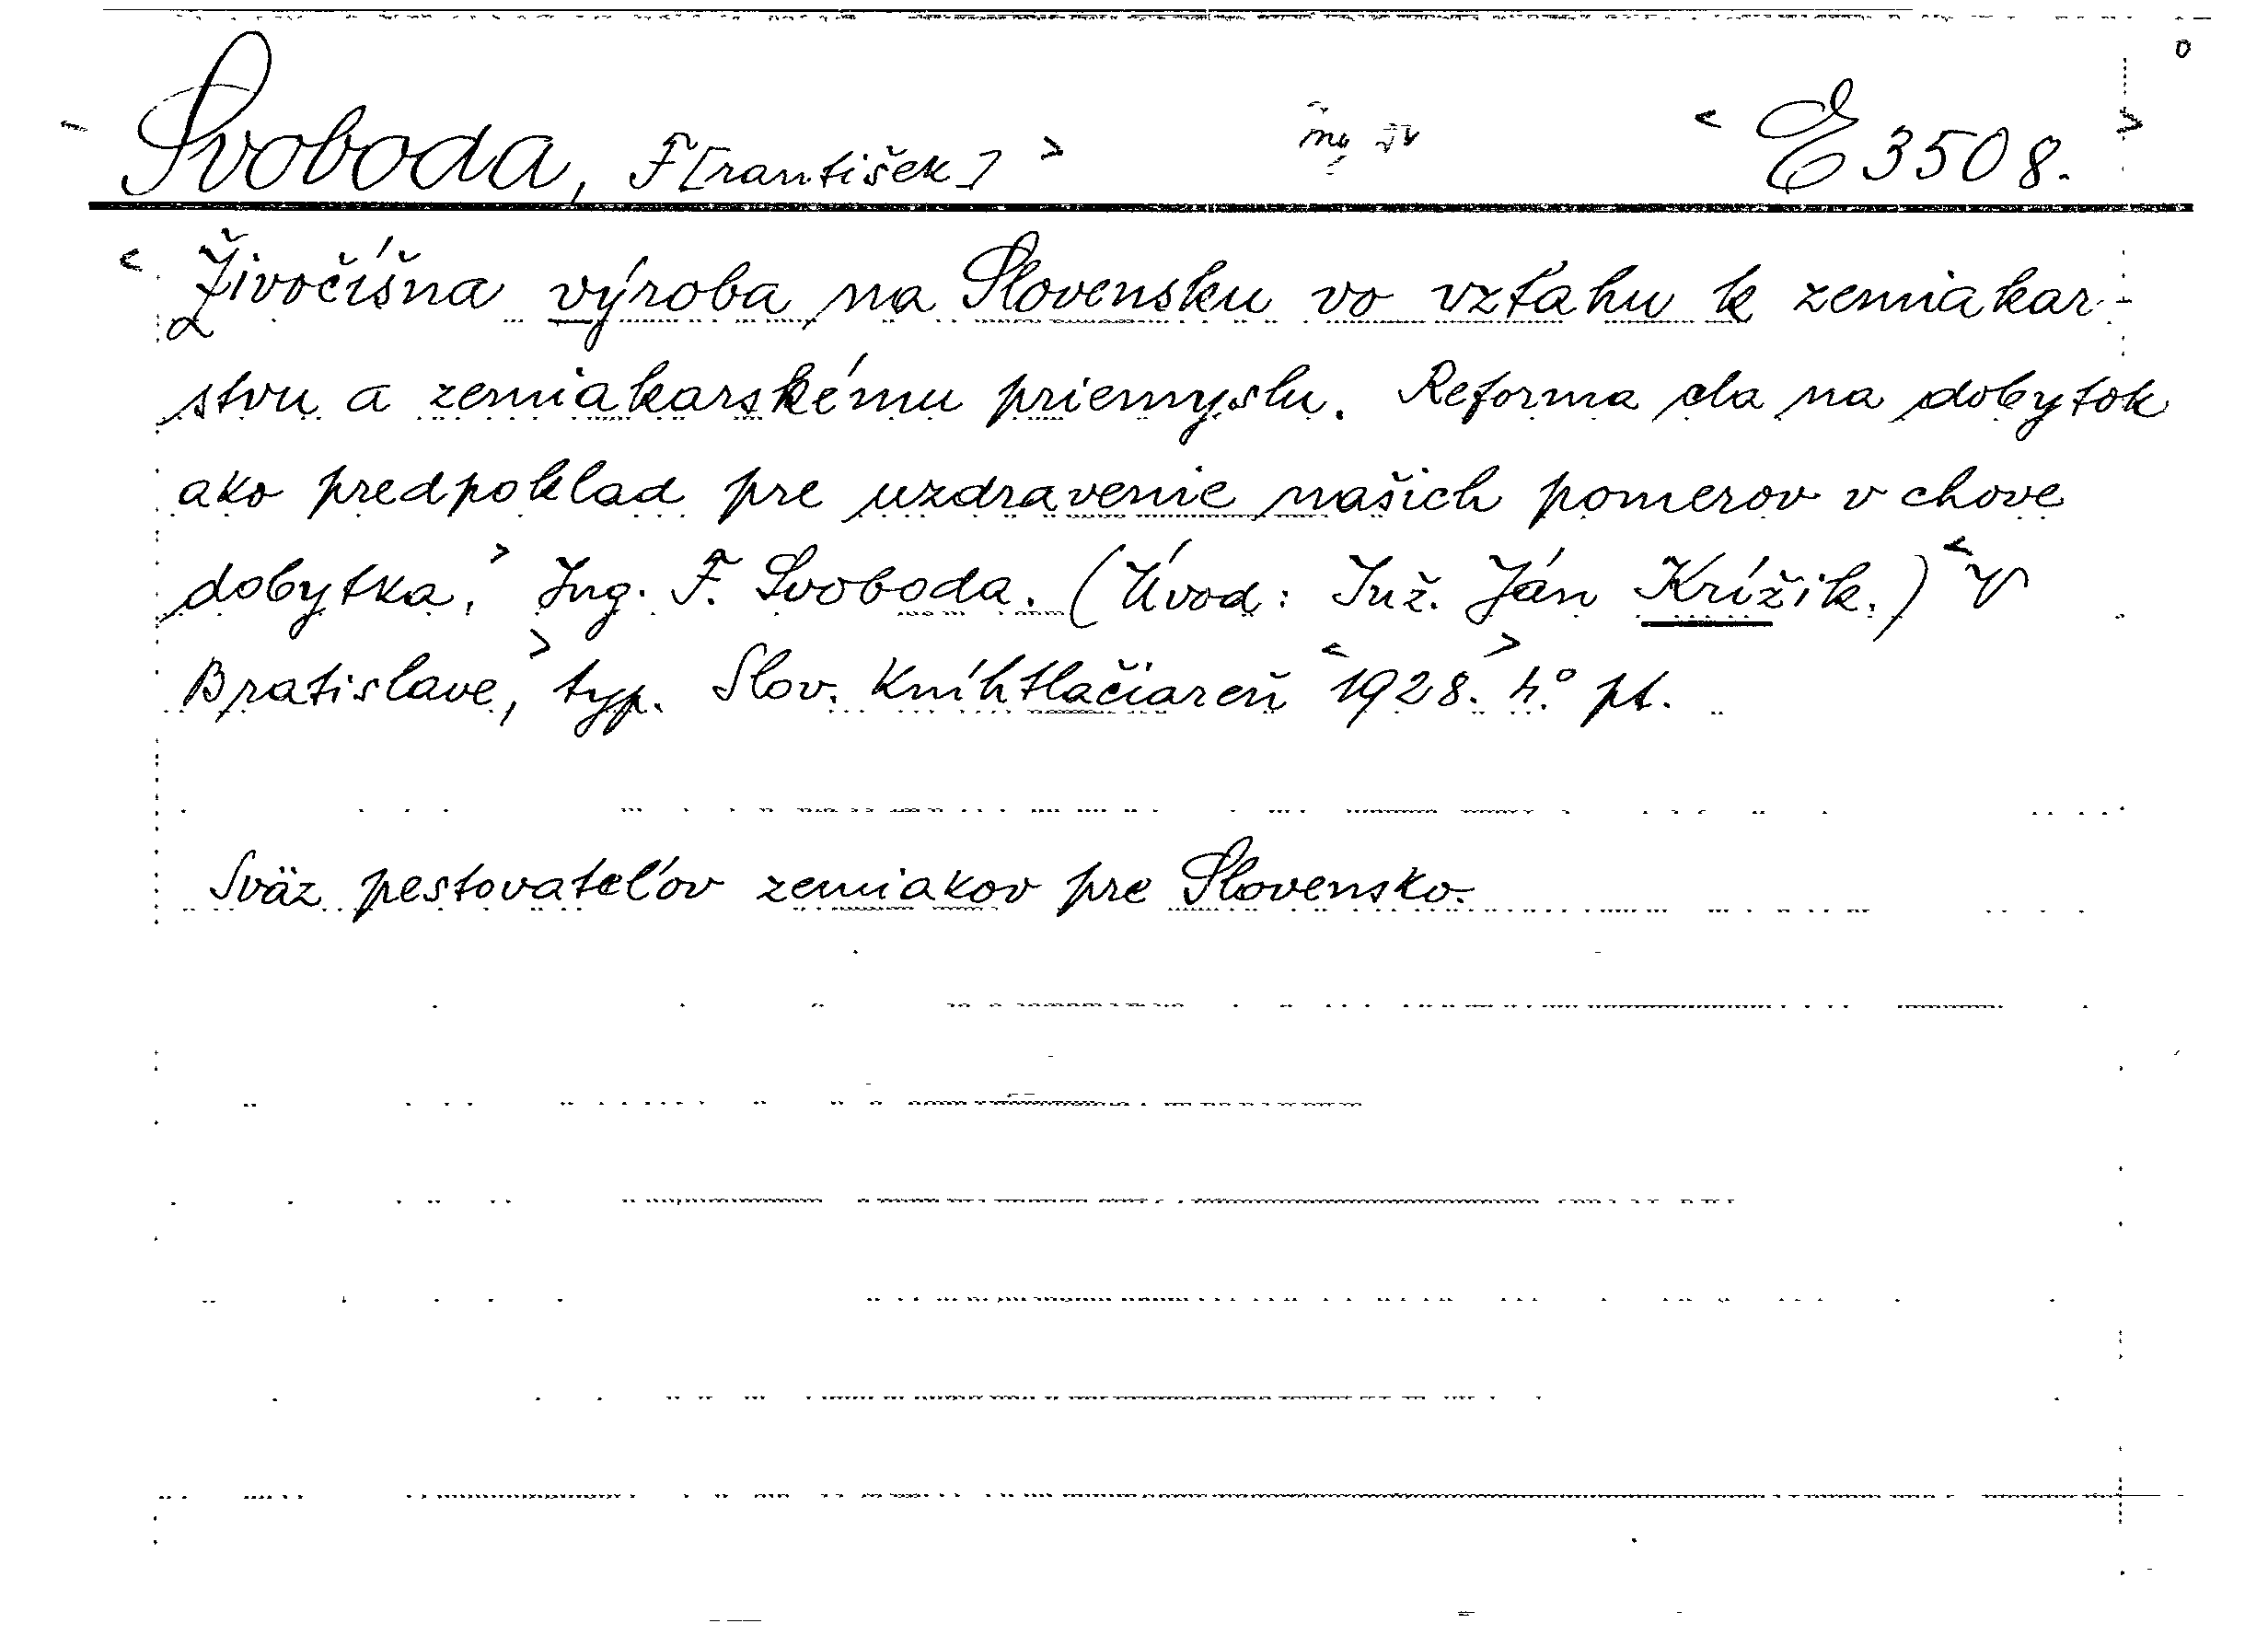 Svoboda, F[rantišek] E 3508.
Živočíšna výroba na Slovensku vo vzťahu k zemiakar-
stvu a zemiakarskému priemyslu. Reforma cla na dobytok
ako predpoklad pre uzdravenie našich pomerov v chove
dobytka. Ing. F. Svoboda. (Úvod: Inž. Ján Krížik.) V
Bratislave, typ. Slov. Kníhtlačiareň 1928. 4.° pt.
Sväz pestovateľov zemiakov pre Slovensko.